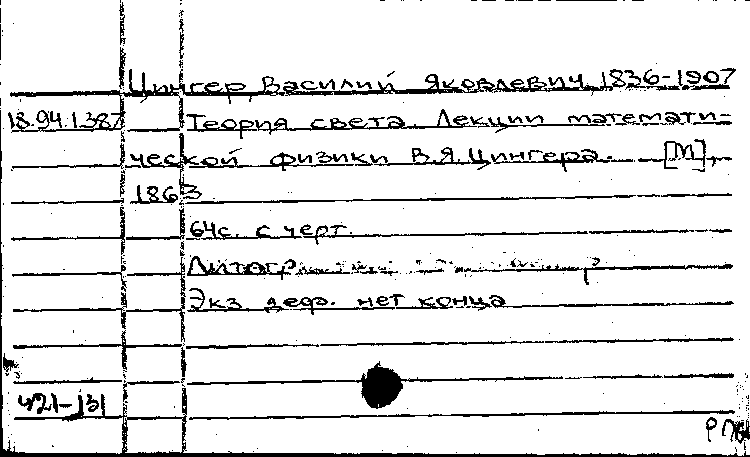 Цингер, Василий Яковлевич, 1836-1907
18.94.1.387 Теория света. Лекции математи-
ческой физики В.Я. Цингера. - [М],
1863
64с. с черт.
Литогр
Экз. деф. нет конца